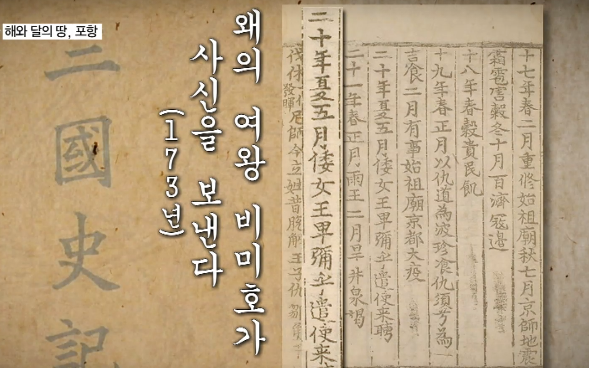 해와 달의 땅, 포항
三國史記
왜의 여왕 비미호가
사신을 보낸다
(173년)
十七年春二月重修始祖廟秋七月京師地震
霜雹害穀冬十月百濟寇邊
十八年春穀貴民飢
十九年春正月以仇道為波珍飡仇須兮為一
吉飡二月有事始祖廟京都大疫
二十年夏五月倭女王卑彌乎遣使来聘
二十一年春正月雨土二月旱井泉竭
二十年夏五月倭女王卑彌乎遣使来
伐休尼師今立姓昔脫解王子仇鄒